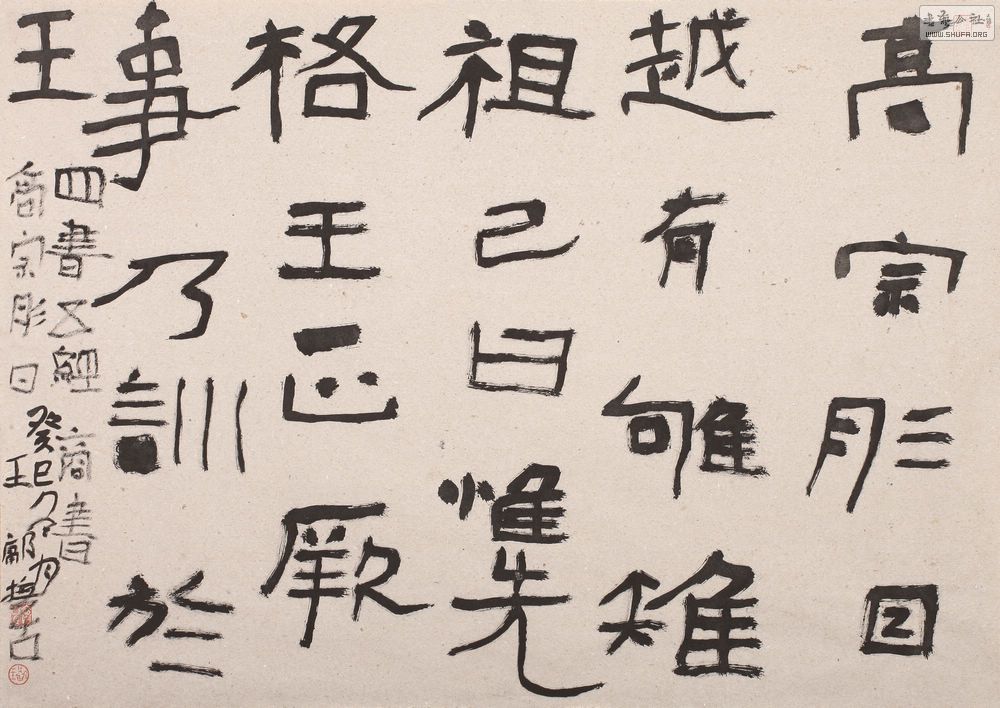 高宗肜日
越有雊雉
祖己曰惟先
格王正厥
事乃訓於
王
四書五經 商書
高宗肜日
癸巳
王
WWW.SHUFA.ORG